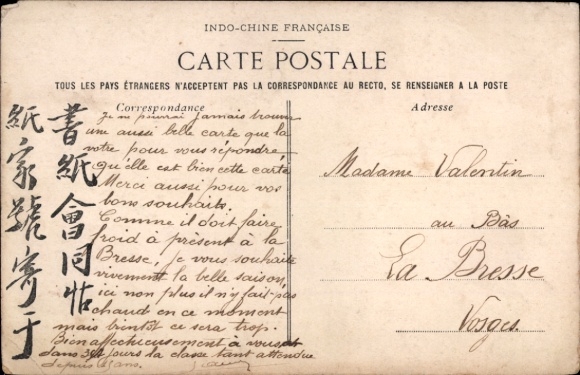 INDO-CHINE FRANÇAISE
CARTE POSTALE
TOUS LES PAYS ÉTRANGERS N'ACCEPTENT PAS LA CORRESPONDANCE AU RECTO, SE RENSEIGNER A LA POSTE
Correspondance
Je ne pourrai jamais trouver
une aussi belle carte que la
votre pour vous répondre
Qu'elle est bien cette carte
Merci aussi pour vos
bons souhaits.
Comme il doit faire
froid à présent à la
Bresse, je vous souhaite
vivement la belle saison,
ici non plus il n'y fait pas
chaud en ce moment
mais bientôt ce sera trop.
Bien affectueusement à vous
dans jours la classe tant attendue
depuis ans.
書紙會同
紙家號寄于
Adresse
Madame Valentin
au Bàs
La Bresse
Vosges.